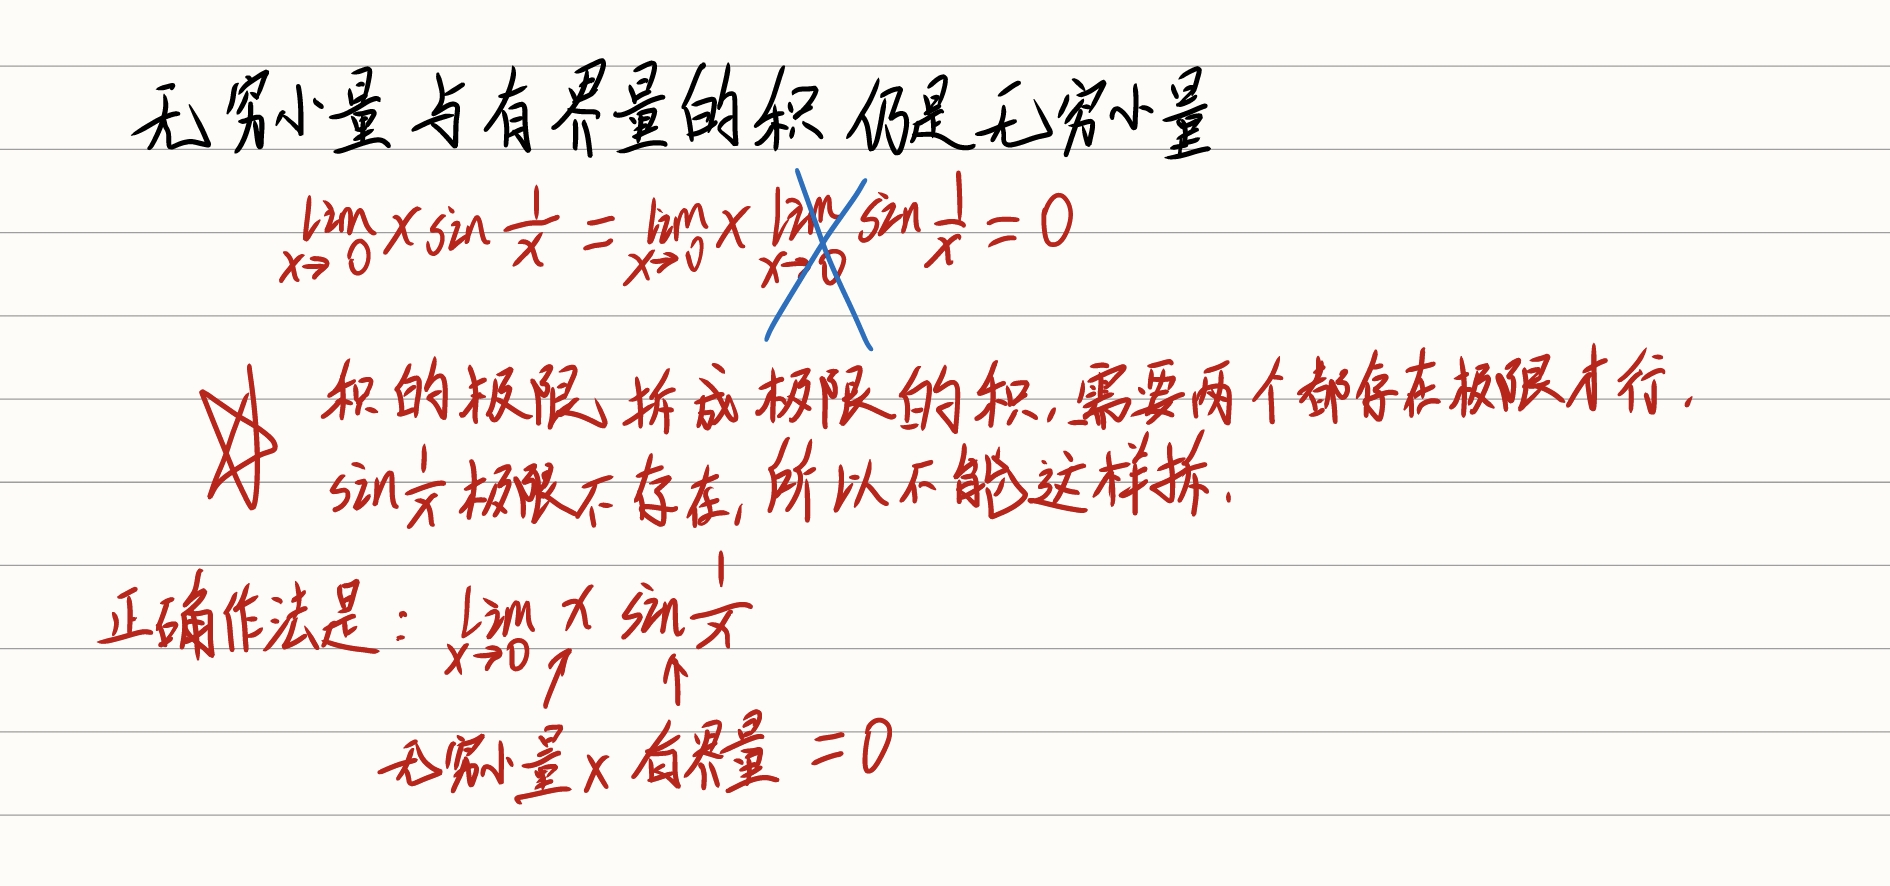 无穷小量与有界量的积仍是无穷小量
lim x→0 x sin 1/x = lim x→0 x lim x→0 sin 1/x = 0
积的极限拆成极限的积,需要两个都存在极限才行.
sin 1/x 极限不存在,所以不能这样拆.
正确作法是: lim x→0 x sin 1/x
无穷小量 × 有界量 = 0